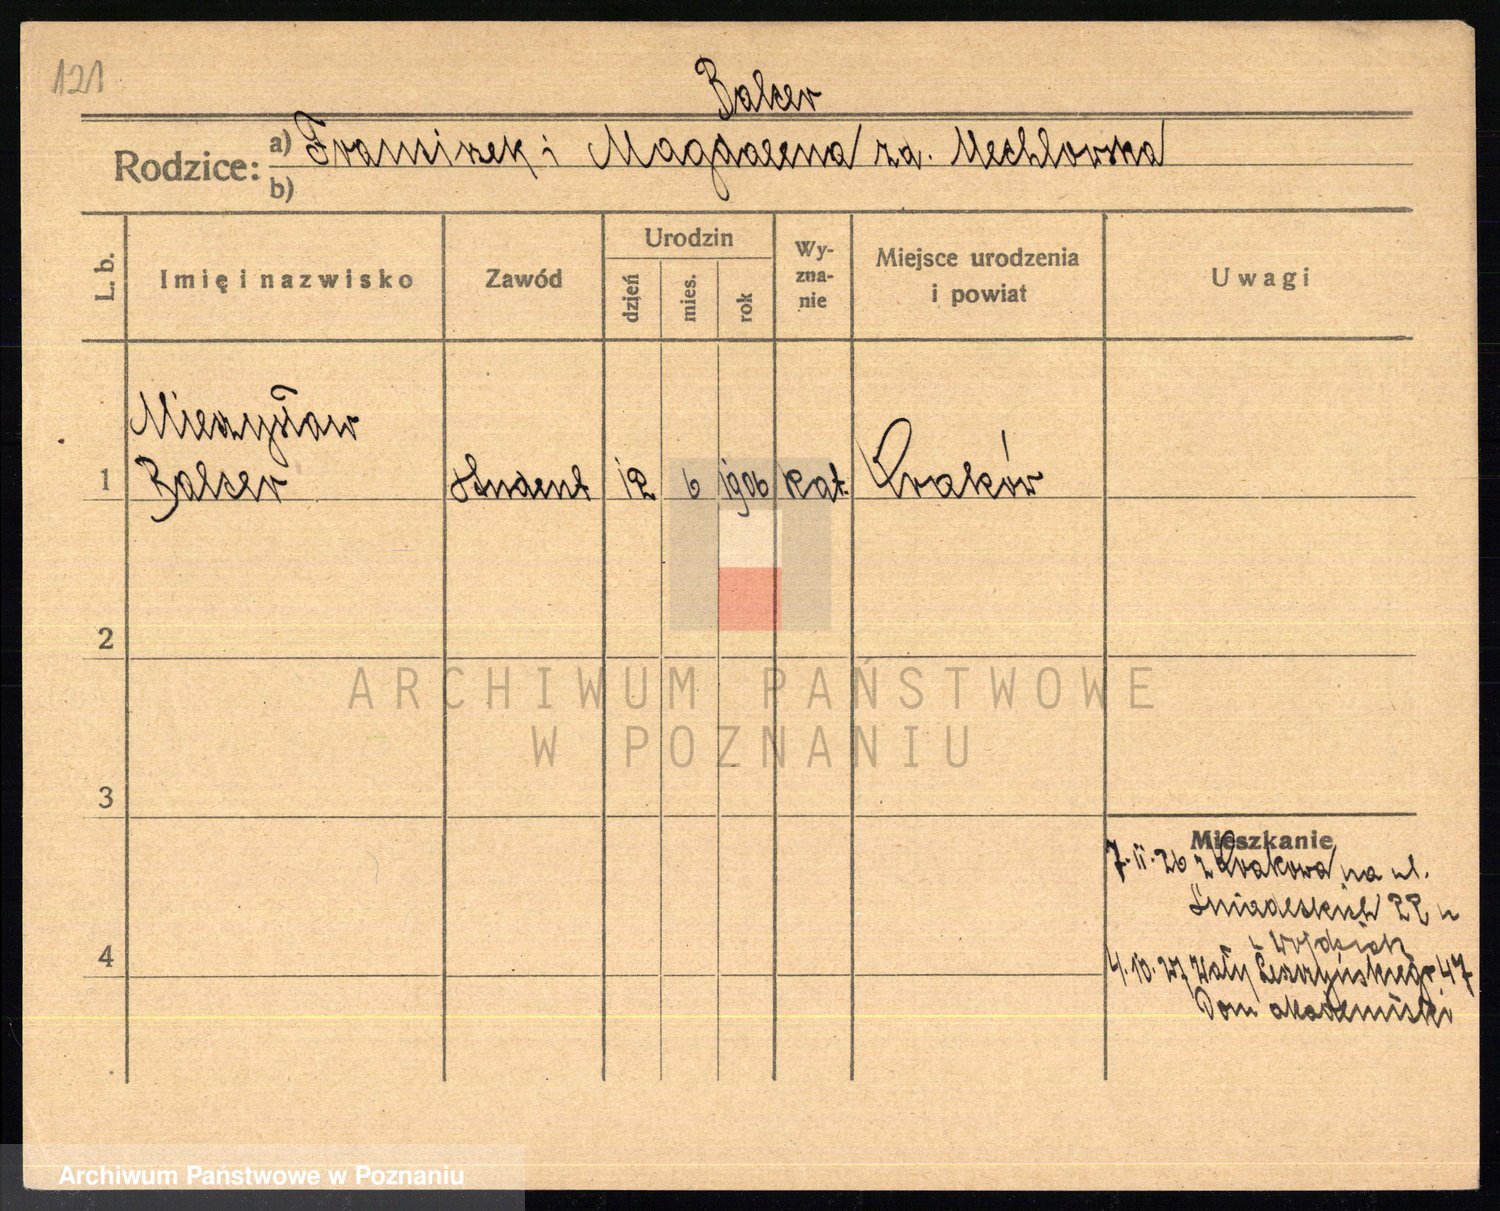 121
Balcer
Rodzice: a) Franciszek i Magdalena za. Mechlowska
b)
L. b.
Imię i nazwisko
Zawód
Urodzin
dzień
mies.
rok
Wy-
zna-
nie
Miejsce urodzenia
i powiat
Uwagi
Mieczysław
1 Balcer student 12 6 1906 kat. Kraków
2
ARCHIWUM PAŃSTWOWE
W POZNANIU
3
Mieszkanie
7.II.26 z Krakowa na ul.
Śniadeckich 22 u
4
4.10.27 Wały Leszczyńskiego 47
Dom akademicki
Archiwum Państwowe w Poznaniu